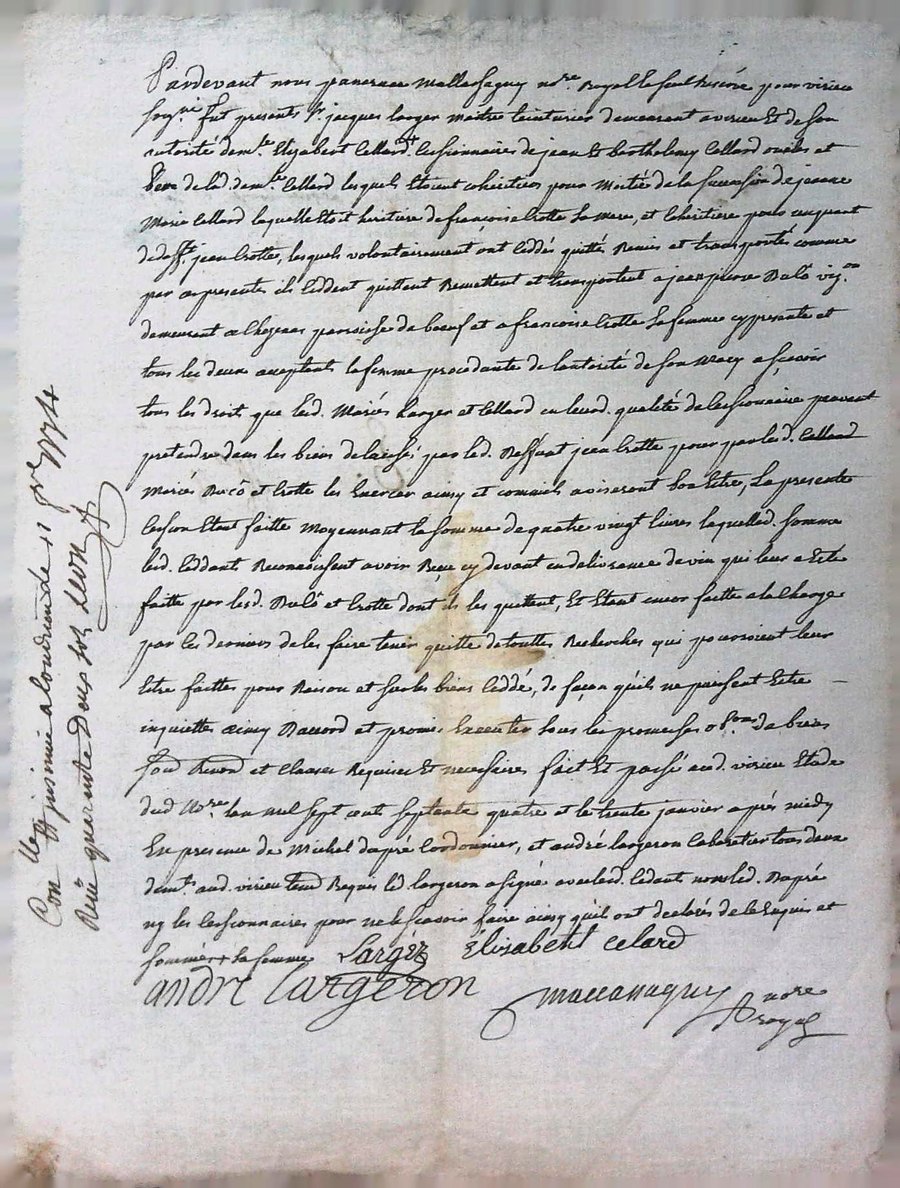 Pardevant nous pancrace mallassagny no.re Royal le seul Réservé pour virieu
soug.né fut presents s.r jacques larger maitre teinturier demeurant a virieu Et de son
autorité dem.lle Elizabert Cellard + Cessionnaires de jean Et Barthelemy Cellard oncles et
de lad. dem.lle Cellard lesquels Etoient cohéritiers pour Moitié de la succession de jeanne
Marie Cellard laquelle Etoit heritiere de françoise Crotte sa mere, et Cohéritiere pour un quart
de deff.t jean Crotte, lesquels volontairement ont Ceddés quitté Remis et transportés comme
par ces presentes ils Ceddent quittent Remettent et transportent a jean pierre Balé vig.on
demeurent a Chezenas paroisse de bœuf et a francoise Crotte sa femme cy presante et
tous les deux acceptants la femme procedante de lautorité de son Mary a sçavoir
tous les droit que lesd. Mariés Larger et Cellard en leurd. qualité de Cessionnaire peuvent
pretendre dans les biens delaissé par led. Deffunt jean Crotte pour par lesd.
Mariés et Crotte les Exercer ainsy et comm'ils aviseront bon Etre, La presente
Cession Etant faitte Moyennant la somme de quatre vingt livres laquelled. somme
lesd. Ceddant Reconnoissent avoir Reçue cy devant en delivrance de vin qui leur a Eté
faitte par lesd. Balé et Crotte dont ils les quittent, Et Etant encor faitte a la Charge
par les derniers de les faire tenir quitte de touttes Recherches qui pourroient leur
Etre faittes pour Raison et sur les biens Ceddé, de façon qu'ils ne puissent Estre
inquiettés ainsy Daccord et promis Executer sous les promesses obb.ons de biens
soum Renon.d et Clauses Requises Et necessaires fait Et passé aud. virieu Etude
dud No.re lan mil sept cent septante quatre et le trente janvier après midy
En presence de Michel dupré Cordonnier, et andré largeron Cabaretier tous deux
dem.ts aud. virieu tem Requis led. largeron a signé avec lesd. Cedant non led. Dupré
ny les Cessionnaires pour ne le scavoir faire ainsy qu'ils ont declarés de ce Enquis et
sommés + sa femme Larger Élisabeth celard
andré Largeron
no.re
royal
Con.lle Et insinué a Condrieu le 11 f.er 1774
Reçu quarente Deux sols Leon